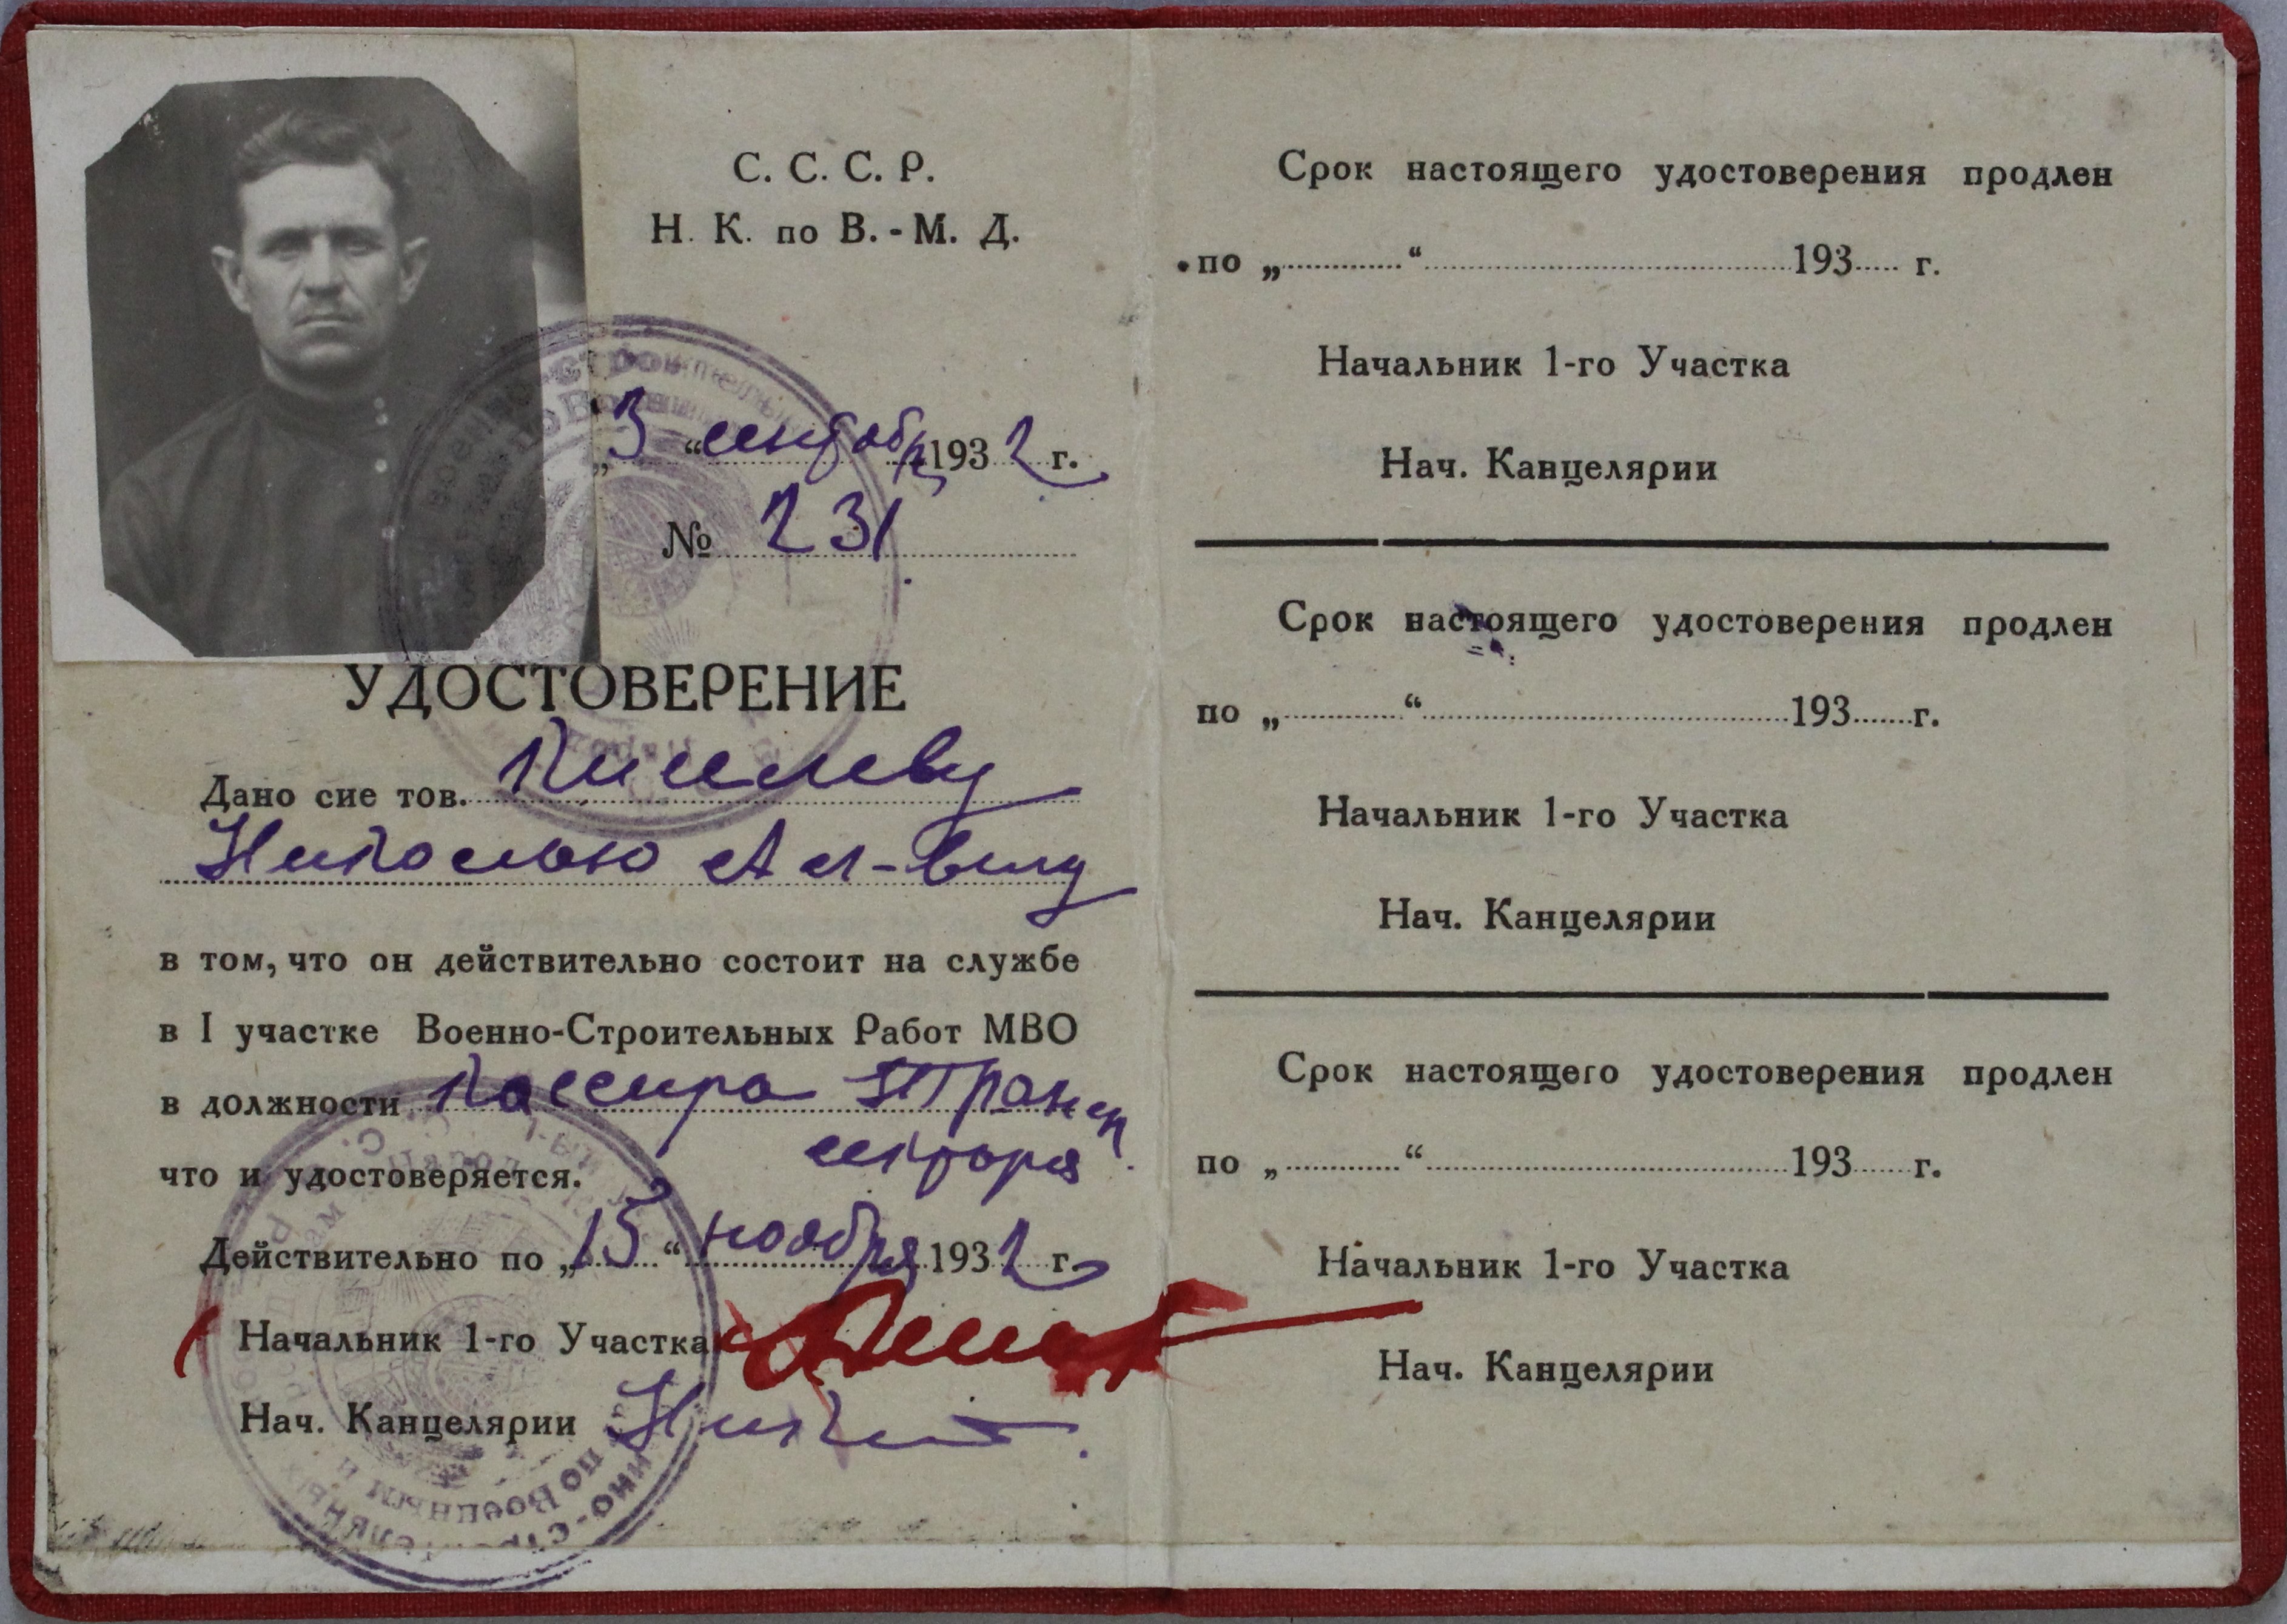 С. С. С. Р.
Н. К. по В.-М. Д.
„3“ сентября 1932 г.
№ 231
УДОСТОВЕРЕНИЕ
Дано сие тов. Киселеву
Николаю Ал-вичу
в том, что он действительно состоит на службе
в I участке Военно-Строительных Работ МВО
в должности Кассира Трансп
сектора
что и удостоверяется.
Действительно по „15“ ноября 1932 г.
Начальник 1-го Участка
Нач. Канцелярии
Срок настоящего удостоверения продлен
по „..............“ ........................................ 193..... г.
Начальник 1-го Участка
Нач. Канцелярии
Срок настоящего удостоверения продлен
по „..............“ ........................................ 193.......г.
Начальник 1-го Участка
Нач. Канцелярии
Срок настоящего удостоверения продлен
по „..............“ ........................................ 193.......г.
Начальник 1-го Участка
Нач. Канцелярии